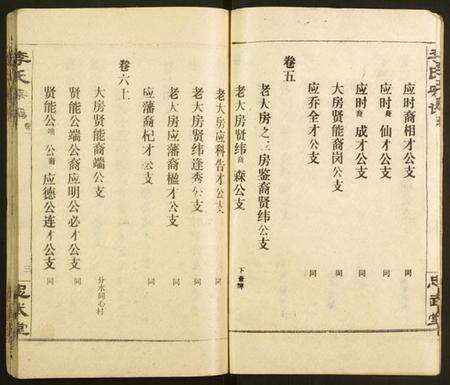 应时裔相才公支 同
应时裔仙才公支 同
应时裔成才公支 同
大房贤能裔岗公支 同
应乔全才公支 同
卷五
老大房之三房鉴裔贤纬公支
老大房贤纬裔森公支
老大房应科告才公支 同
老大房贤纬逢秀公支 同
老大房应藩裔楹才公支 同
应藩裔杞才公支 同
卷六上
大房贤能裔端公支 分水同心村
贤能公端公裔应明公必才公支 同
贤能公端公裔应德公连才公支 同
李氏
忠武堂